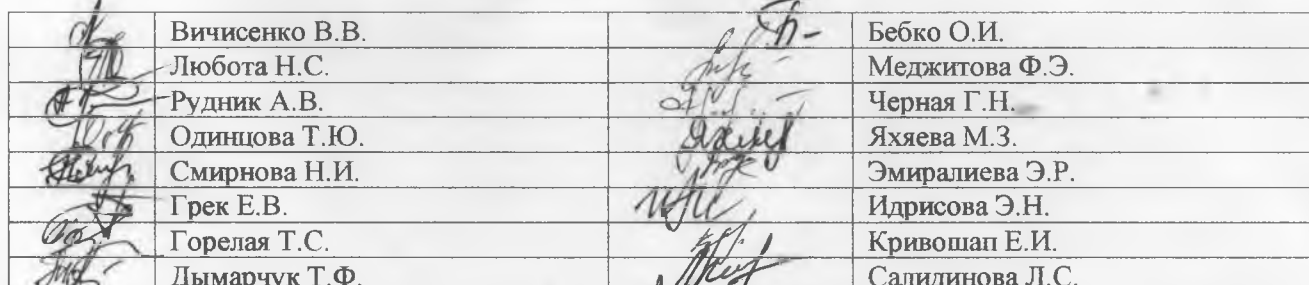 Вичисенко В.В. Бебко О.И.
Любота Н.С. Меджитова Ф.Э.
Рудник А.В. Черная Г.Н.
Одинцова Т.Ю. Яхяева М.З.
Смирнова Н.И. Эмиралиева Э.Р.
Грек Е.В. Идрисова Э.Н.
Горелая Т.С. Кривошап Е.И.
Дымарчук Т.Ф. Салидинова Л.С.